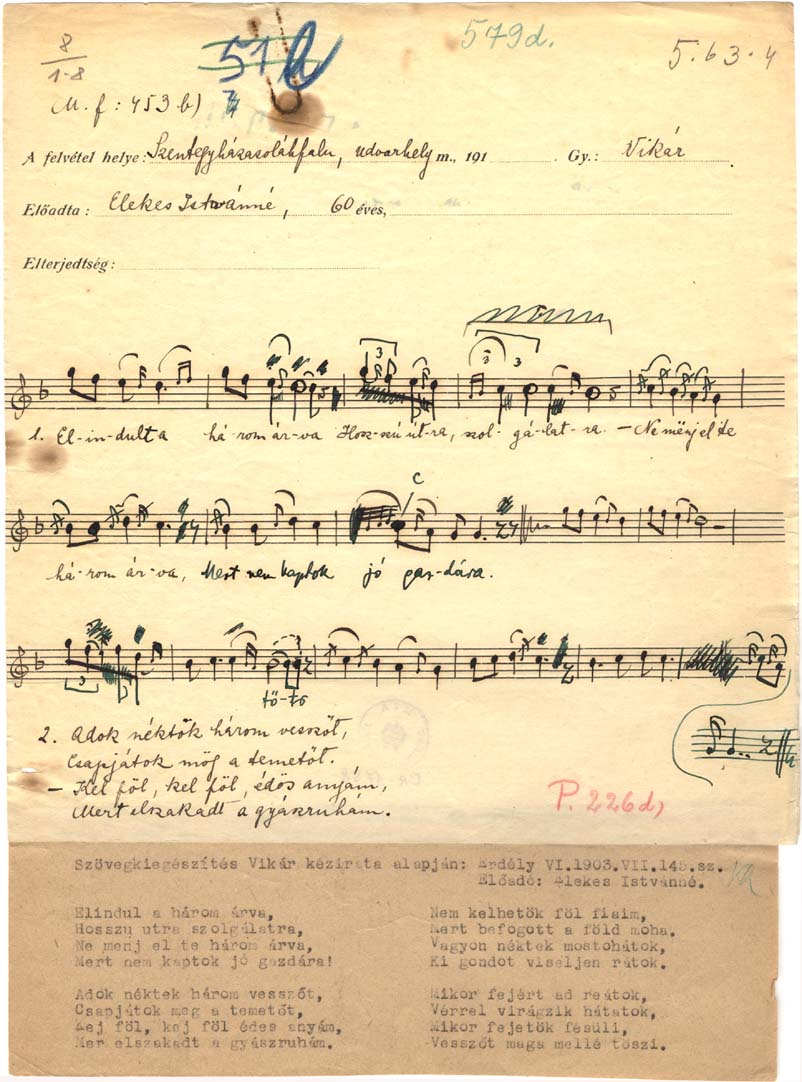 8
1-8
51
579d.
5.63.4
M. f: 453 b)
A felvétel helye: Szentegyházasoláhfalu, Udvarhely m., 191 Gy.: Vikár
Előadta: Elekes Istvánné, 60 éves,
Elterjedtség:
3
3 3
1. El-in-dult a há-rom ár-va Hosz-szú út-ra, szol-gá-lat-ra. – Ne mënj el te
C
há-rom ár-va, Mert nem kaptok jó gaz-dára.
3 3
tö-tö
2. Adok néktök három vesszőt,
Csapjátok mög a temetőt.
– Kel föl, kel föl, édös anyám,
Mert elszakadt a gyászruhám.
P. 226d,
Szövegkiegészítés Vikár kézirata alapján: Erdély VI.1903.VII.145.sz.
Előadó: Elekes Istvánné.
Elindul a három árva,
Hosszu utra szolgálatra,
Ne menj el te három árva,
Mert nem kaptok jó gazdára!
Adok néktek három vesszőt,
Csapjátok meg a temetőt,
Kej föl, kej föl édes anyám,
Mer elszakadt a gyászruhám.
Nem kelhetök föl fiaim,
Mert befogott a föld moha.
Vagyon néktek mostohátok,
Ki gondot viseljen rátok.
Mikor fejért ad reátok,
Vérrel virágzik hátatok,
Mikor fejetök fésüli,
Vesszőt maga mellé töszi.